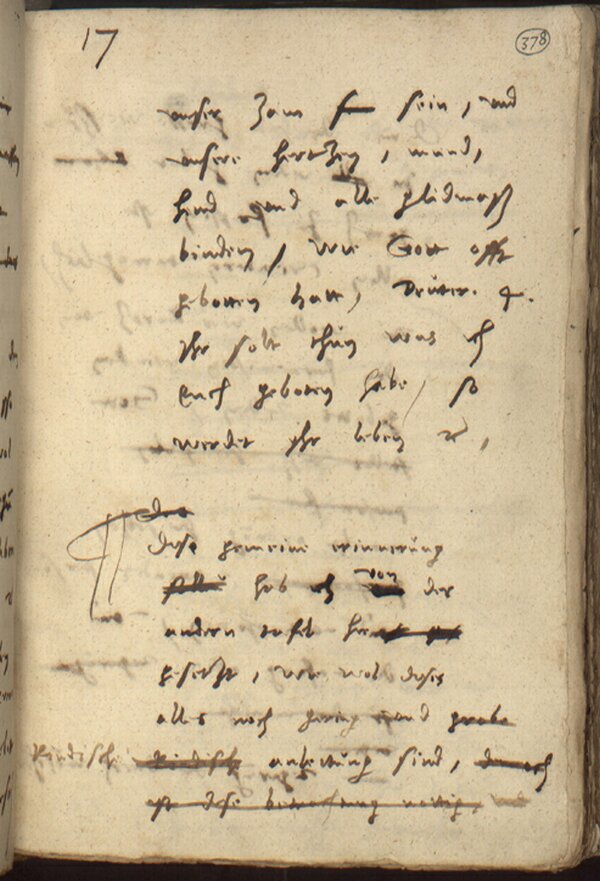 17
378
unser Zam sein, und
unsere hertzen, mund,
hend und alle glidmass
binden, wie Gott offt
gebotten hatt, Deuter. 4.
Ihr solt thun was ich
Euch geboten habe, so
werdet ihr leben etc,
Dise gemeine erinnerung
hab ich von der
andern tafel her
gesetzt, wie wol dises
alles noch gering und grobe
kindische anleitung sind,